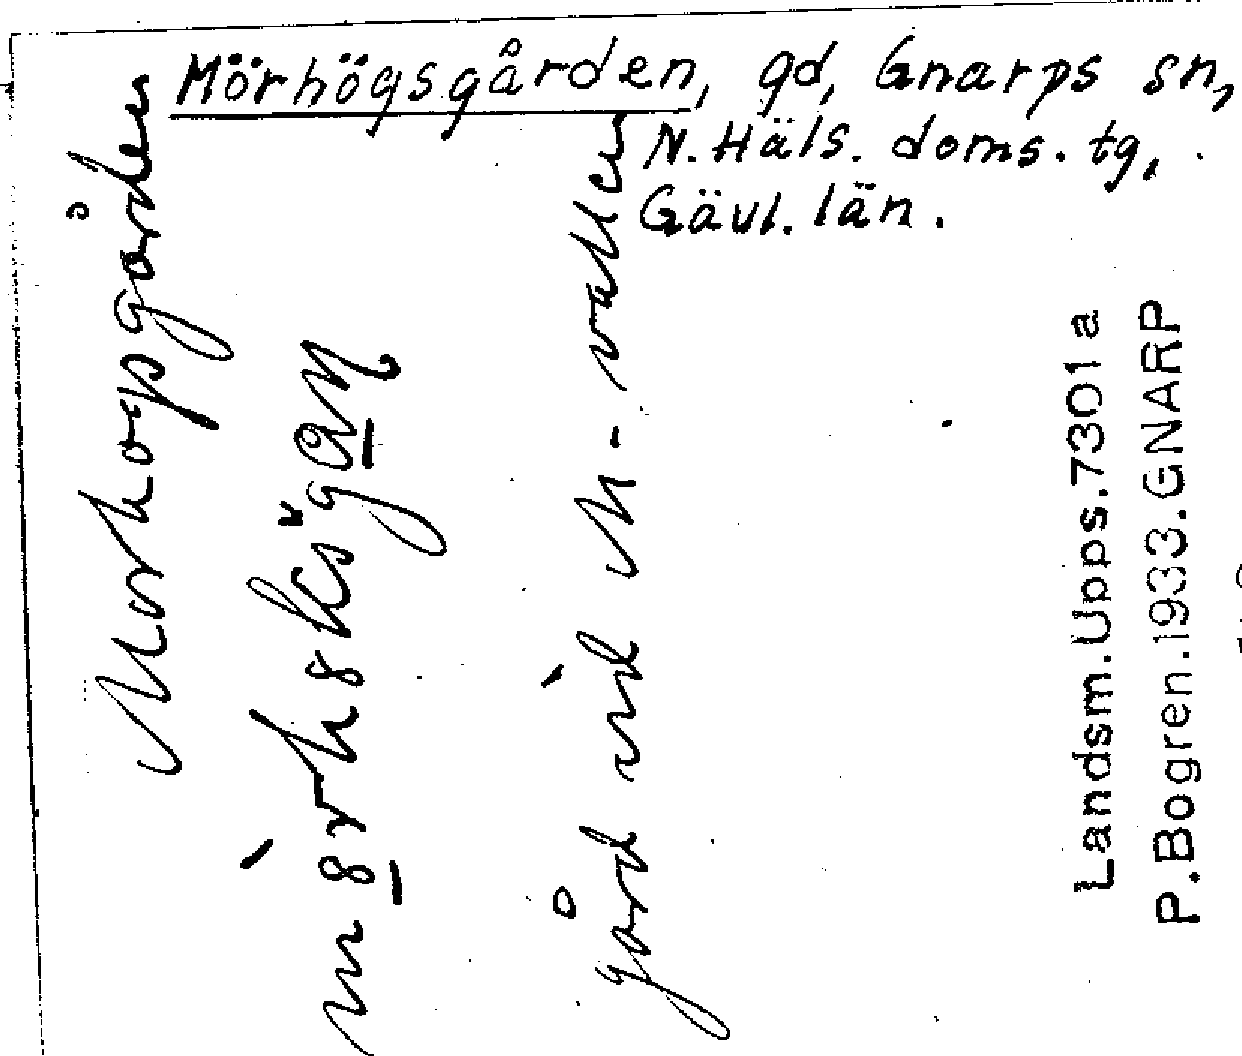 Mörhögsgården, gd, Gnarps sn,
N. Häls. doms. tg,
Gävl. län.
gård vid M-vallen
Landsm. Upps. 7301 a
P. Bogren. 1933. GNARP